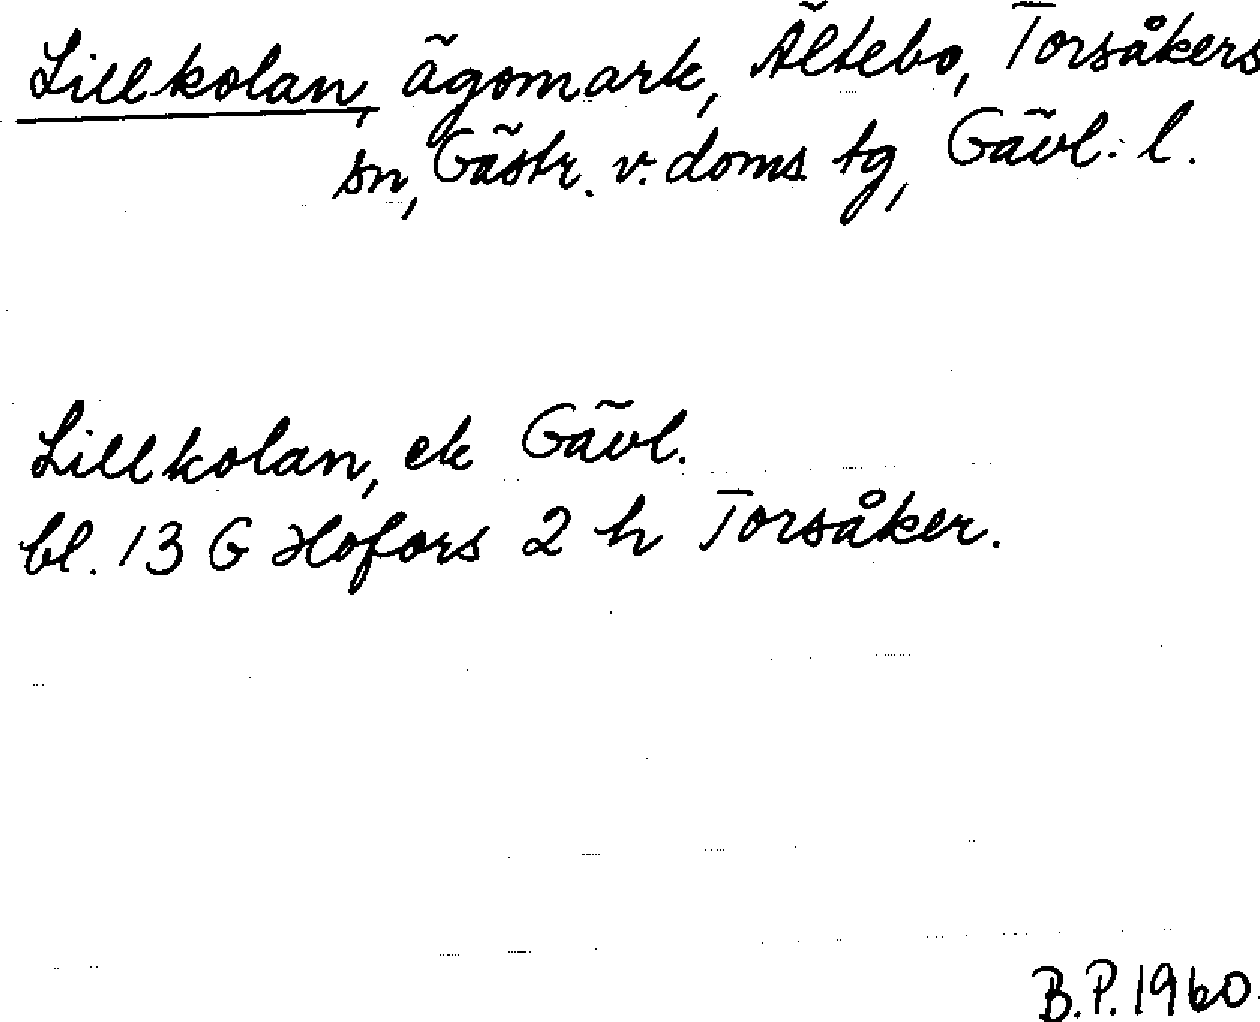 Lillkolan, ägomark, Ältebo, Torsåkers
sn, Gästr. v. doms tg, Gävl. l.
Lillkolan, ek Gävl.
bl. 13 G Hofors 2 h Torsåker.
B.P. 1960.